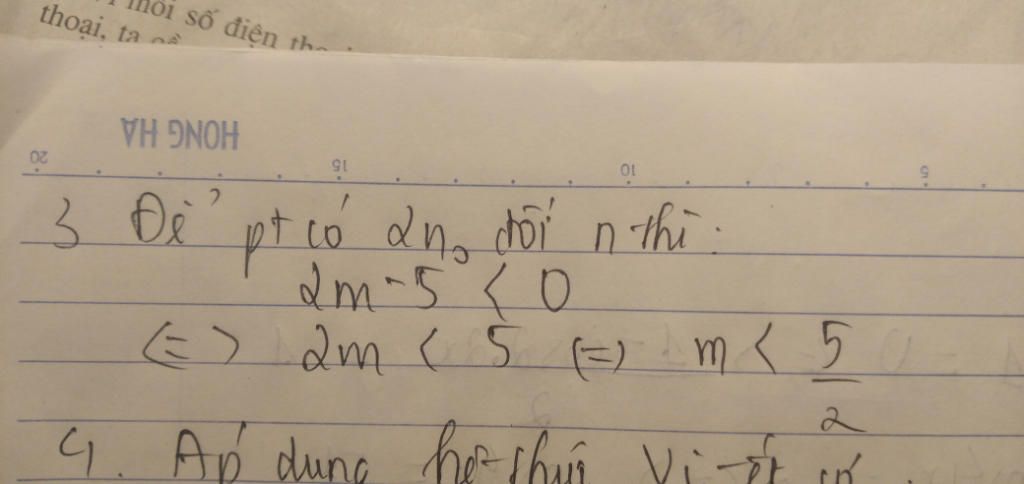 mỗi số điện
thoại, ta
HONG HA
20 15 10 5
3 Để pt có 2 n₀ đối n thì :
2m - 5 < 0
<=> 2m < 5 <=> m < 5/2
4. Áp dụng hệ thức Vi-ét có